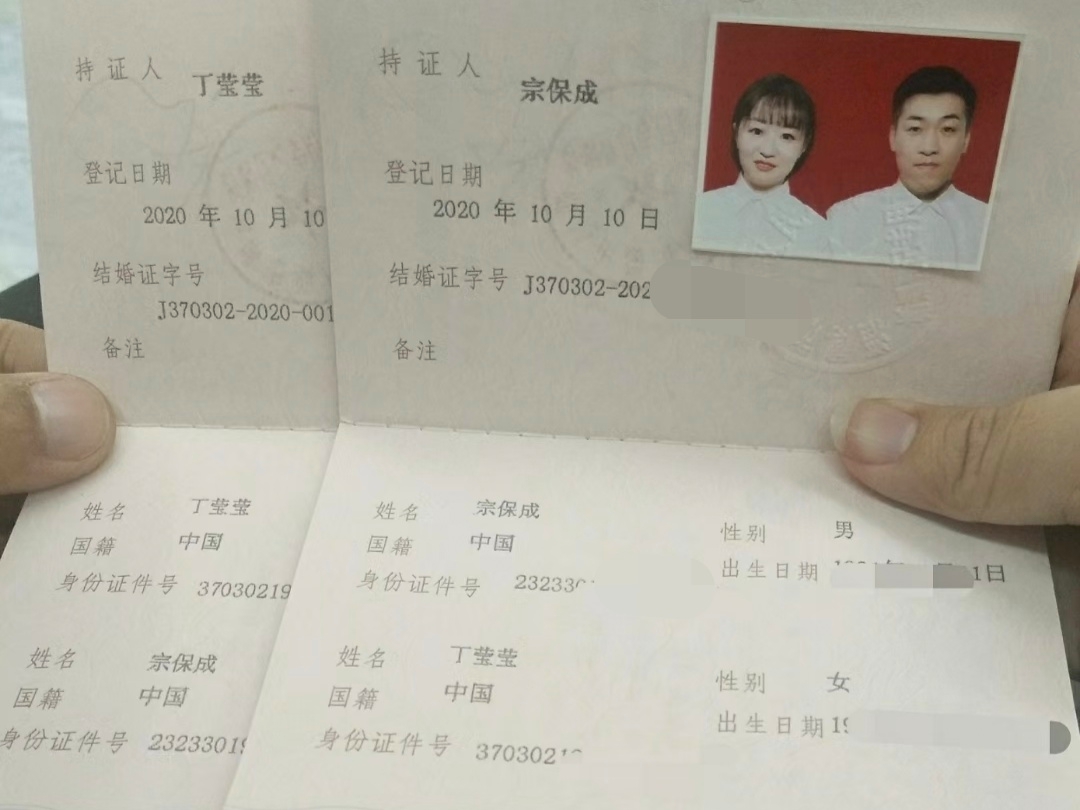 持证人 丁莹莹
登记日期
2020 年 10 月 10
结婚证字号
J370302-2020-001
备注
姓名 丁莹莹
国籍 中国
身份证件号 37030219
姓名 宗保成
国籍 中国
身份证件号 23233019
持证人 宗保成
登记日期
2020 年 10 月 10 日
结婚证字号 J370302-202
备注
姓名 宗保成 性别 男
国籍 中国 出生日期 1日
身份证件号 232330
姓名 丁莹莹 性别 女
国籍 中国 出生日期 19
身份证件号 3703021